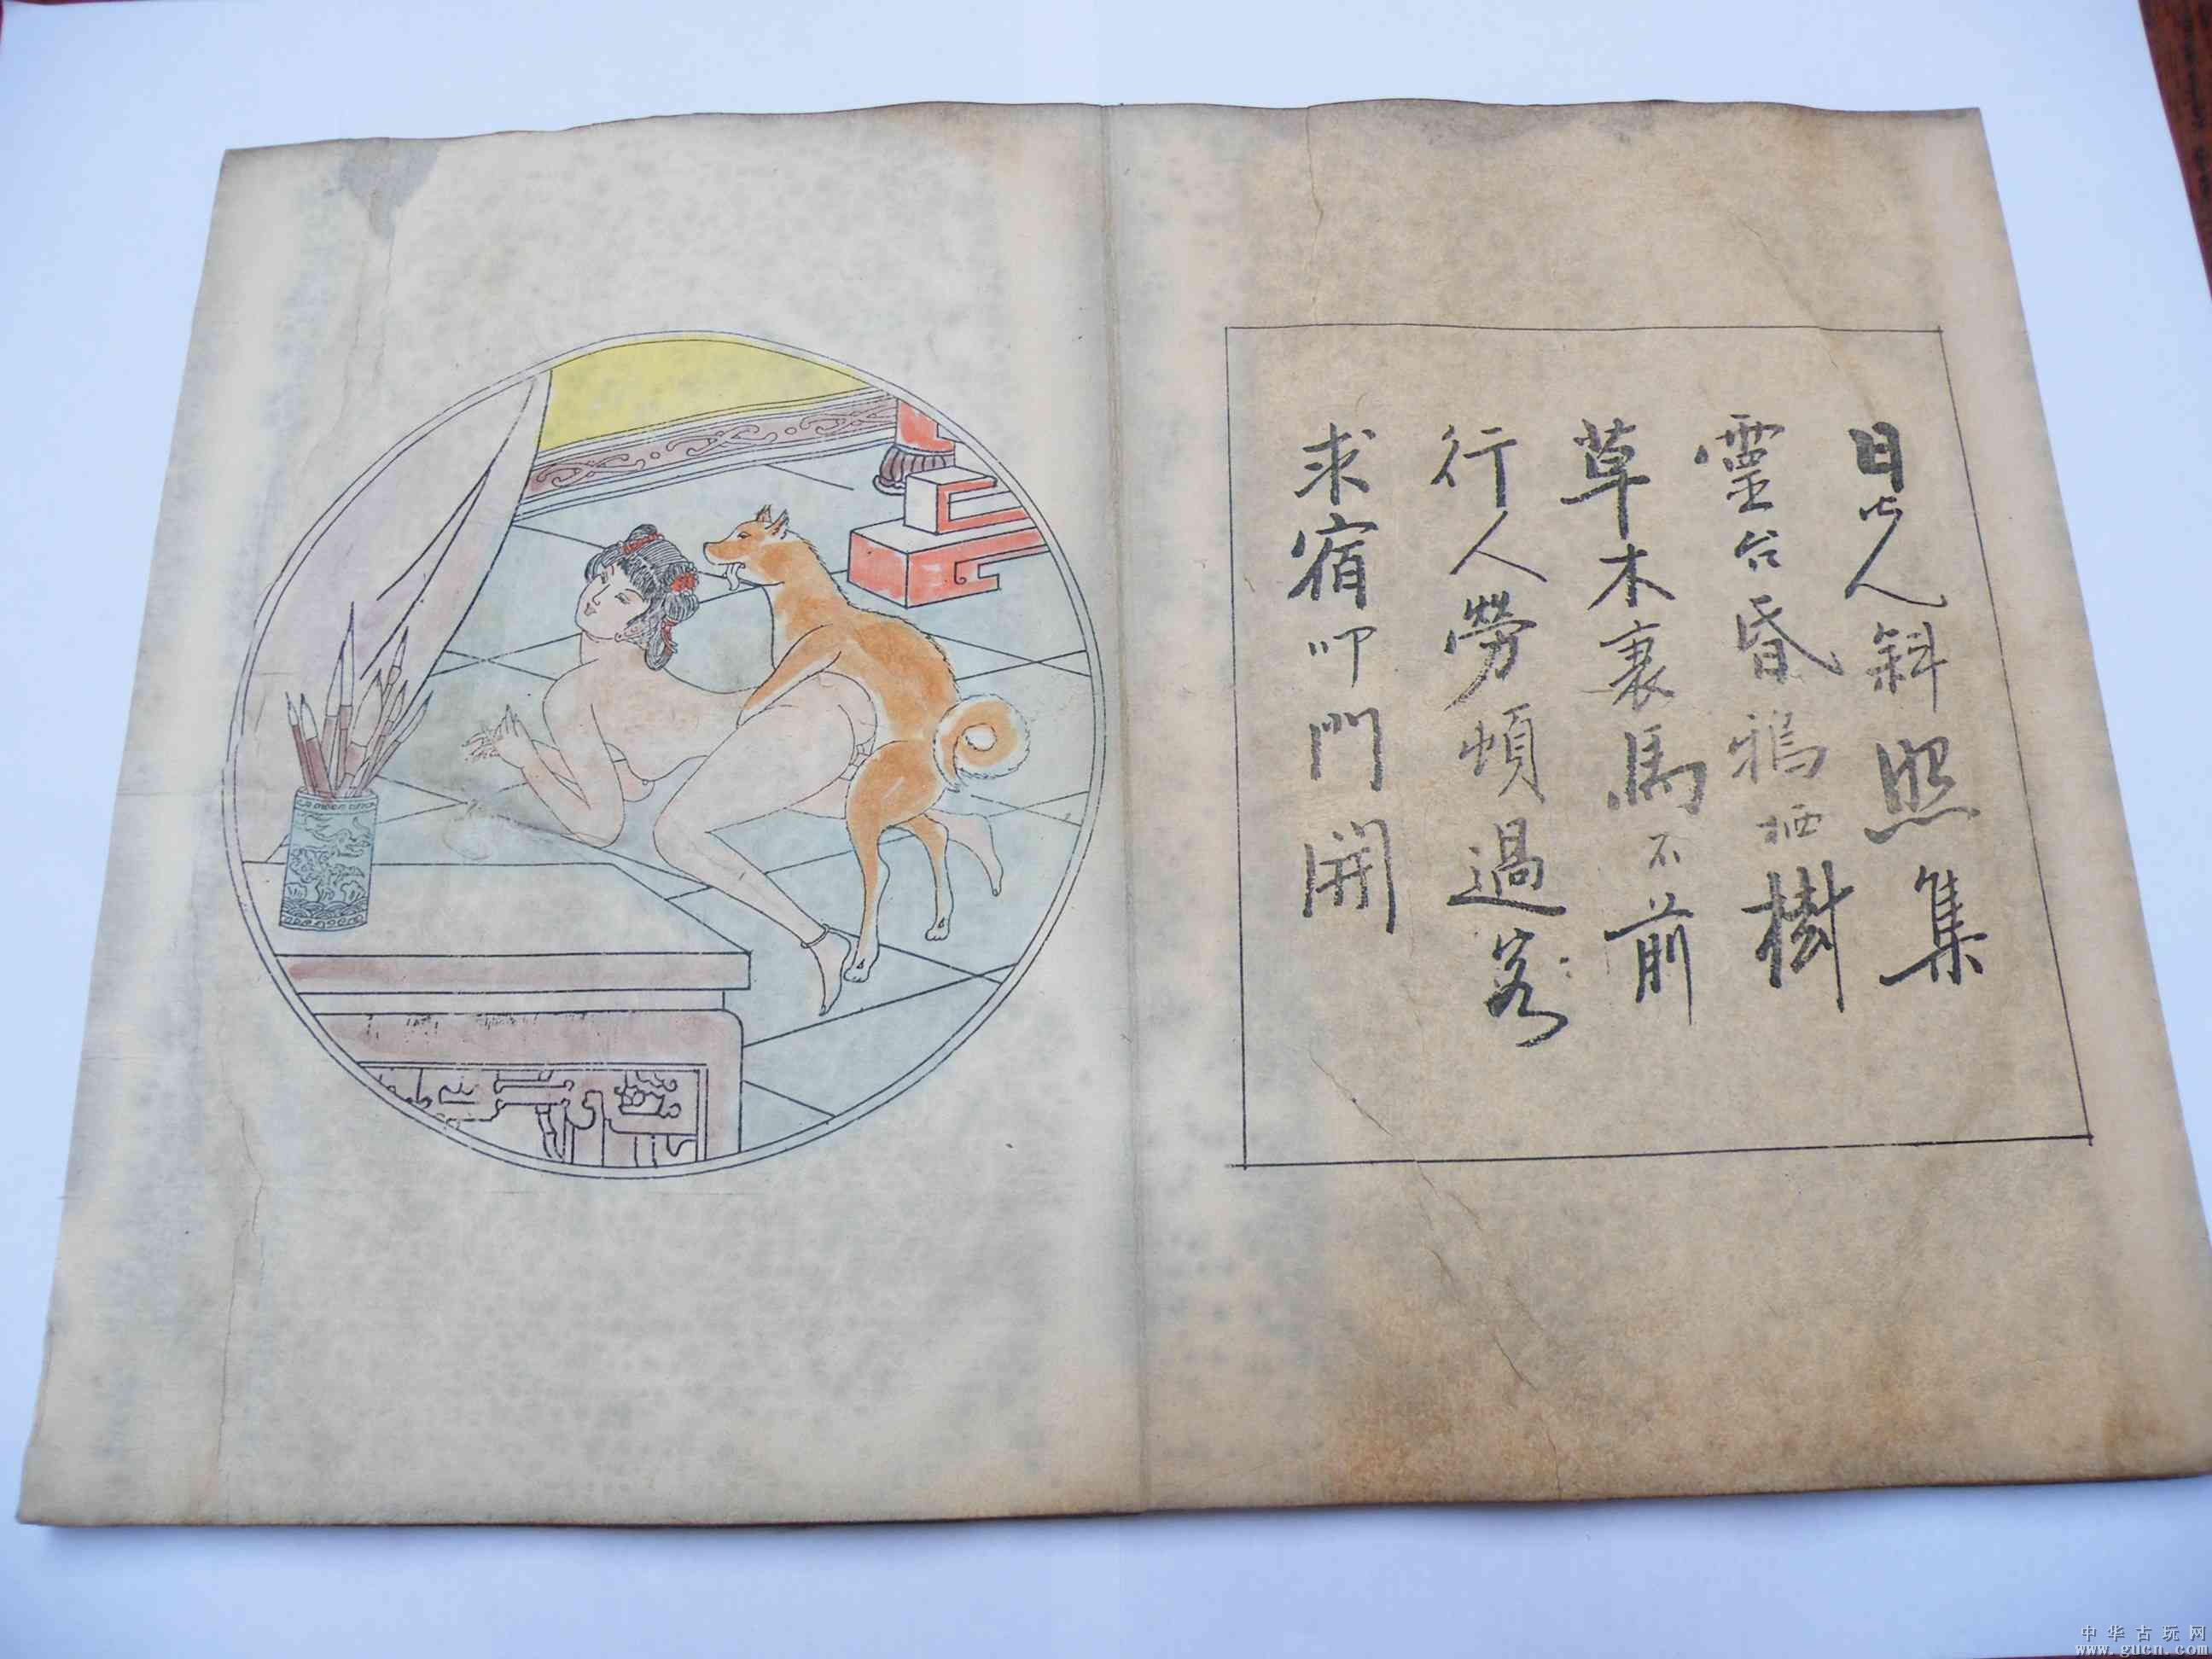 日以斜照集
靈台昏鴉栖樹
草木裹馬不前
行人勞頓過客
求宿叩門開
中华古玩网
www.gucn.com